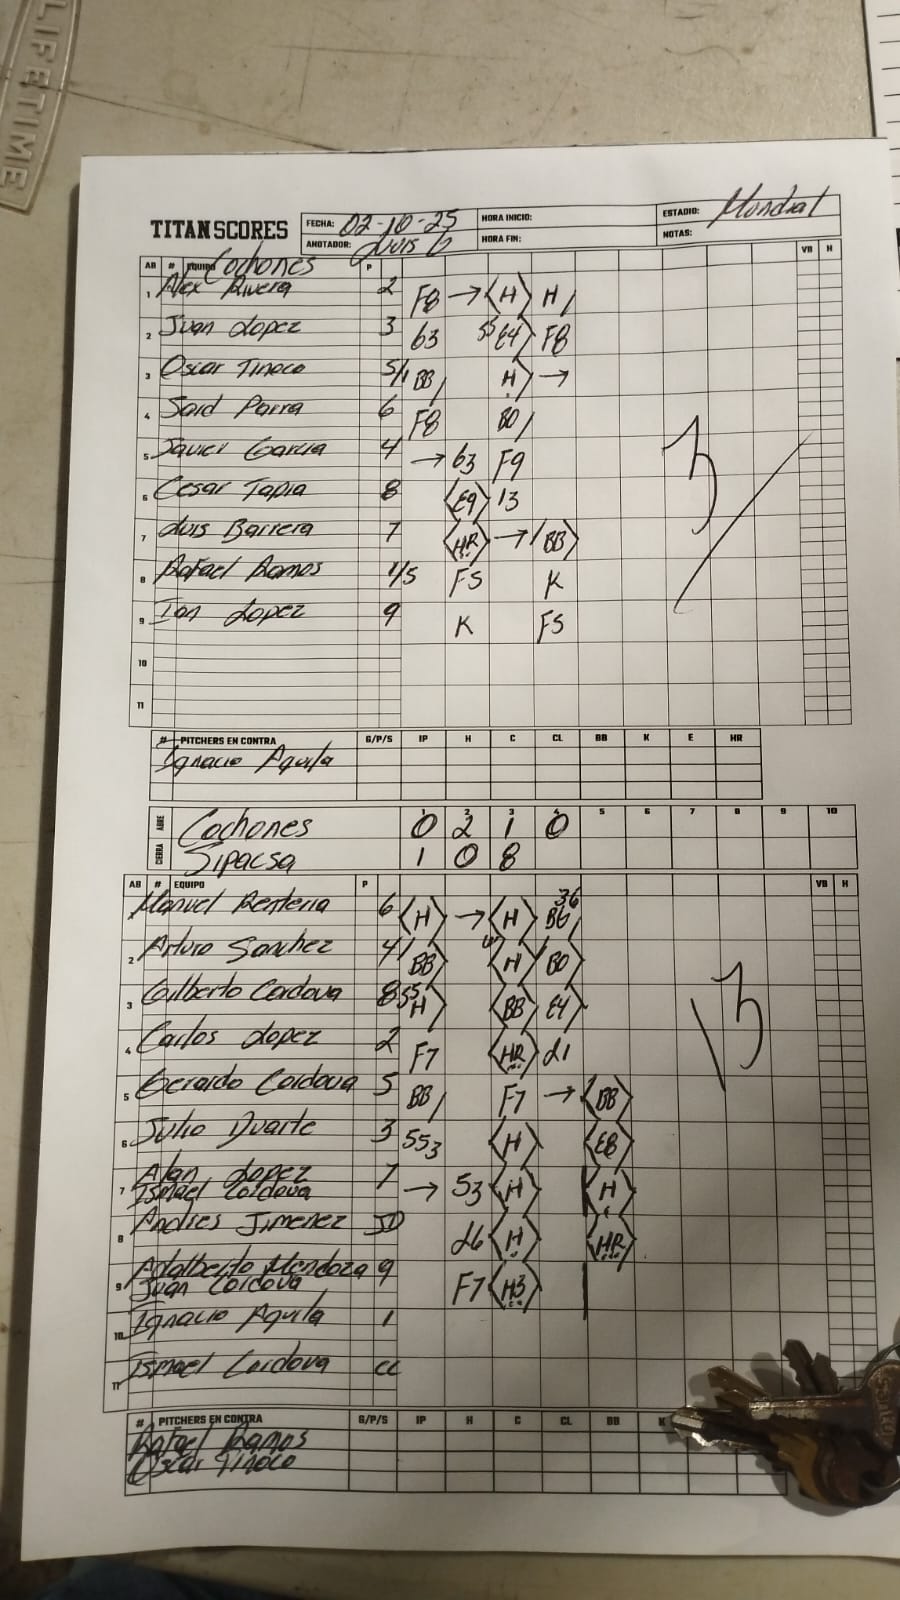 LIFETIME
TITAN SCORES
FECHA: 02-10-25 HORA INICIO: ESTADIO: Mundial
ANOTADOR: Luis HORA FIN: NOTAS:
AB # EQUIPO Cochones P VB H
1 Alex Rivera 2 F8 → H H
2 Juan Lopez 3 63 E4 F8
3 Oscar Tinoco 5/1 BB H →
4 Said Parra 6 F8 BO
5 Javier Garcia 4 → 63 F9
6 Cesar Tapia 8 E9 13
7 Luis Barrera 7 HR → BB
8 Rafael Ramos 1/5 F5 K
9 Ian Lopez 9 K F5
10
11
3
# PITCHERS EN CONTRA G/P/S IP H C CL BB K E HR
Ignacio Aguila
1 2 3 4 5 6 7 8 9 10
ABRE Cochones 0 2 1 0
CIERRA Sipacsa 1 0 8
AB # EQUIPO P VB H
Manuel Renteria 6 H → H 36
2 Arturo Sanchez 4 BB H BO
3 Gilberto Cordova 8 H BB E4
4 Carlos Lopez 2 F7 HR L1
5 Gerardo Cordova 5 BB F7 → BB
6 Julio Duarte 3 553 H E8
7 Alan Lopez 7 → 53 H H
Ismael Cordova
8 Andres Jimenez L6 H HR
9 Adalberto Mendoza 9 F7 H3
Juan Cordova
10 Ignacio Aguila 1
11 Ismael Cordova
13
# PITCHERS EN CONTRA G/P/S IP H C CL BB K
Rafael Ramos
Oscar Tinoco